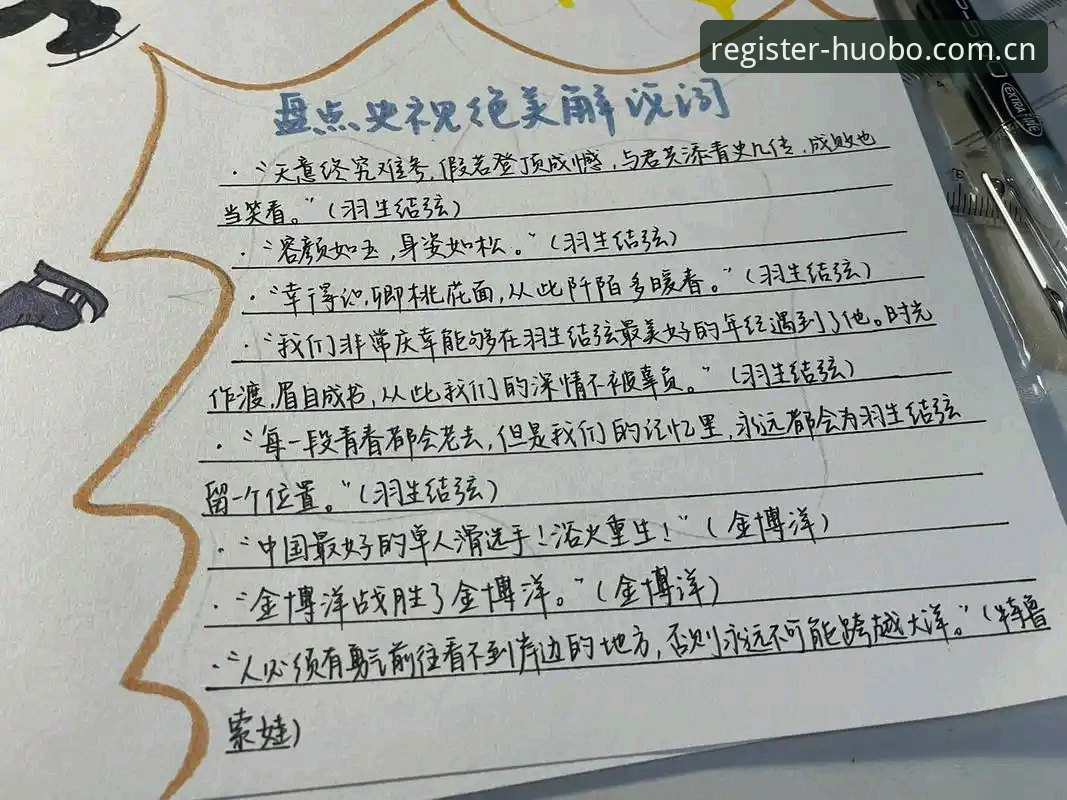 register-huobo.com.cn
EXTRA FINE
盘点央视绝美解说词
·“天意终究难参,假若登顶成憾,与君共添青史几传,成败也
当笑看。”(羽生结弦)
·“容颜如玉,身姿如松。”(羽生结弦)
·“幸得识卿桃花面,从此阡陌多暖春。”(羽生结弦)
·“我们非常庆幸能够在羽生结弦最美好的年纪遇到了他。时光
作渡,眉目成书,从此我们的深情不被辜负。”(羽生结弦)
·“每一段青春都会老去,但是我们的记忆里,永远都会为羽生结弦
留一个位置。”(羽生结弦)
·“中国最好的单人滑选手!浴火重生!”(金博洋)
·“金博洋战胜了金博洋。”(金博洋)
·“人必须有勇气前往看不到岸边的地方,否则永远不可能跨越大洋。”(特鲁
索娃)